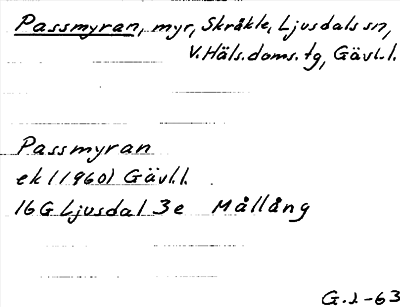 Passmyran, myr, Skråkle, Ljusdals sn,
V. Häls. doms. tg, Gävl. l.
Passmyran
ek (1960) Gävl. l.
16 G Ljusdal 3 e Mållång
G. J-63